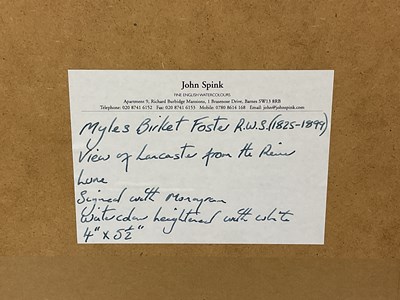 John Spink
FINE ENGLISH WATERCOLOURS
Apartment 9, Richard Burbidge Mansions, 1 Brasenose Drive, Barnes SW13 8RB
Telephone: 020 8741 6152 Fax: 020 8741 6153 Mobile: 0780 8614 168 Email: john@johnspink.com
Myles Birket Foster R.W.S. (1825-1899)
View of Lancaster from the River
Lune
Signed with Monogram
Watercolour heightened with white
4" x 5½"